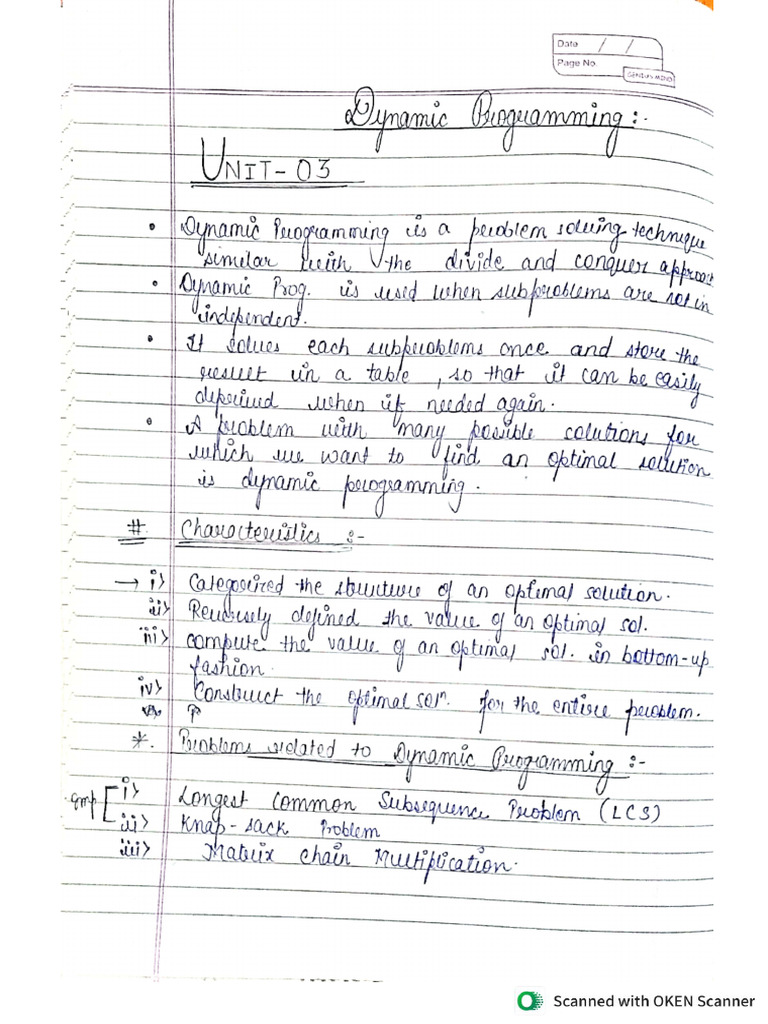 Date / /
Page No.
Dynamic Programming :-
UNIT-03
• Dynamic Programming is a problem solving technique
similar with the divide and conquer approach
• Dynamic Prog. is used when subproblems are not in
independent.
• It solves each subproblems once and store the
result in a table, so that it can be easily
when if needed again.
• A problem with many possible solutions for
which we want to find an optimal solution
is dynamic programming.
# Characteristics :-
→ i> Categorized the structure of an optimal solution.
ii> Recursively defined the value of an optimal sol.
iii> compute the value of an optimal sol. in bottom-up
fashion.
iv> Construct the optimal solⁿ. for the entire problem.
*. Problems related to Dynamic Programming :-
imp [ i> Longest Common Subsequence Problem (LCS)
ii> Knap-sack Problem
iii> Matrix chain Multiplication.
Scanned with OKEN Scanner